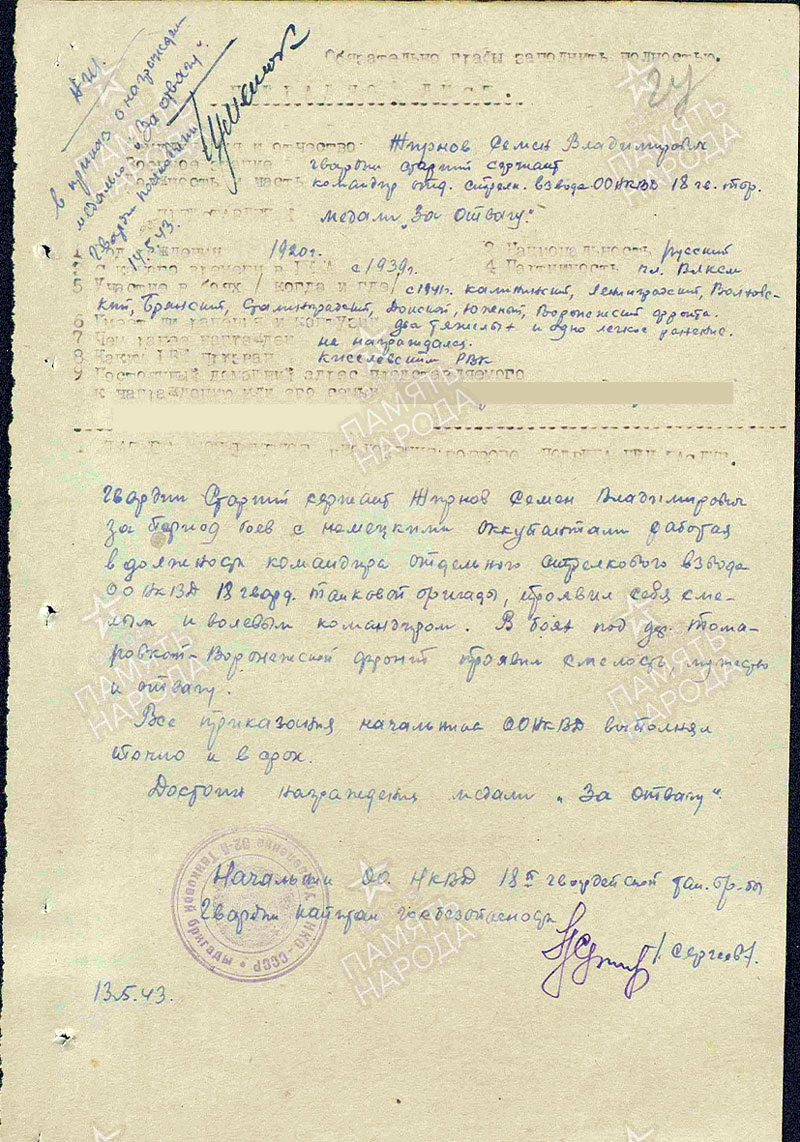 Обязательно графы заполнить полностью.
24
НАГРАДНОЙ ЛИСТ.
в приказ о награжден.
медалью "За отвагу".
Гвардии подполковник
14.5.43.
имя и отчество Жирнов Семен Владимирович
Военное звание гвардии старший сержант
должность и часть командир отд. стрелк. взвода ООНКВД 18 гв. тбр.
медали "За отвагу".
1 Год рождения 1920г. 3 Национальность русский
С какого времени в РККА с 1939г. 4 Партийность чл. ВЛКСМ
5 Участие в боях /когда и где/ с 1941г. Калининский, Ленинградский, Волховс-
кий, Брянский, Сталинградский, Донской, Южный, Воронежский фронта.
6 Имеет ли ранения и контузии два тяжелых и одно легкое ранение.
7 Чем ранее награжден не награждался.
8 Каким РВК призван Киселевским РВК
9 Постоянный домашний адрес представляемого
к награждению или его семьи
Гвардии Старший сержант Жирнов Семен Владимирович
за период боев с немецкими оккупантами работая
в должности командира отдельного стрелкового взвода
ОО НКВД 18 гвард. танковой бригады, проявил себя сме-
лым и волевым командиром. В боях под дер. Тома-
ровкой-Воронежский фронт проявил смелость, мужество
и отвагу.
Все приказания начальника ООНКВД выполнял
точно и в срок.
Достоин награждения медали "За отвагу".
Начальник ОО. НКВД 18й гвардейской тан. бр-ды
Гвардии капитан госбезопасности
/Сергеев/.
13.5.43.
НКО-СССР
Танковой бригады
ПАМЯТЬ НАРОДА